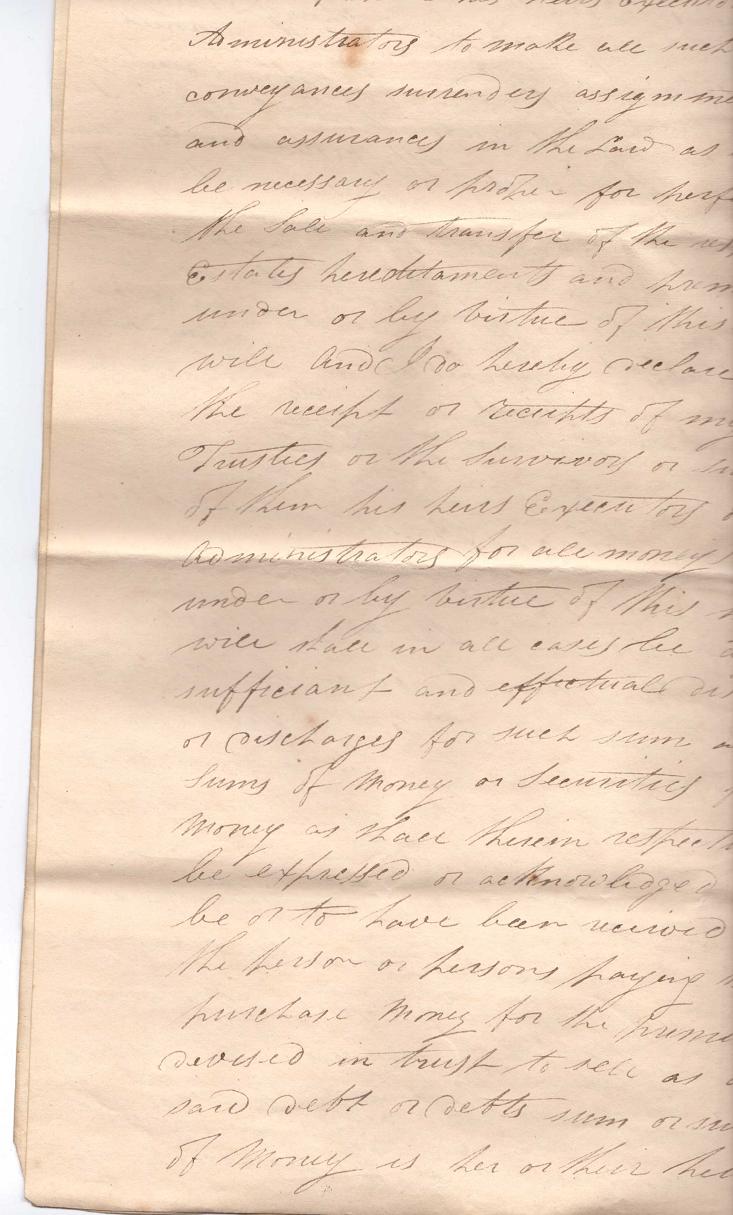 his heirs Executo
Administrators to make all such
conveyances surrenders assignme
and assurances in the Law as
be necessary or proper for perf
the Sale and transfer of the res
Estates hereditaments and prem
under or by virtue of this
will And I do hereby declare
the receipt or receipts of my
Trustees or the Survivors or su
of them his heirs Executors o
Administrators for all money
under or by virtue of this
will shall in all cases be a
sufficient and effectual dis
or discharges for such sum o
Sums of Money or Securities f
Money as shall therein respectiv
be expressed or acknowledged
be or to have been received
the person or persons paying
purchase Money for the premi
devised in trust to sell as a
said debt or debts sum or su
of Money is her or their hei